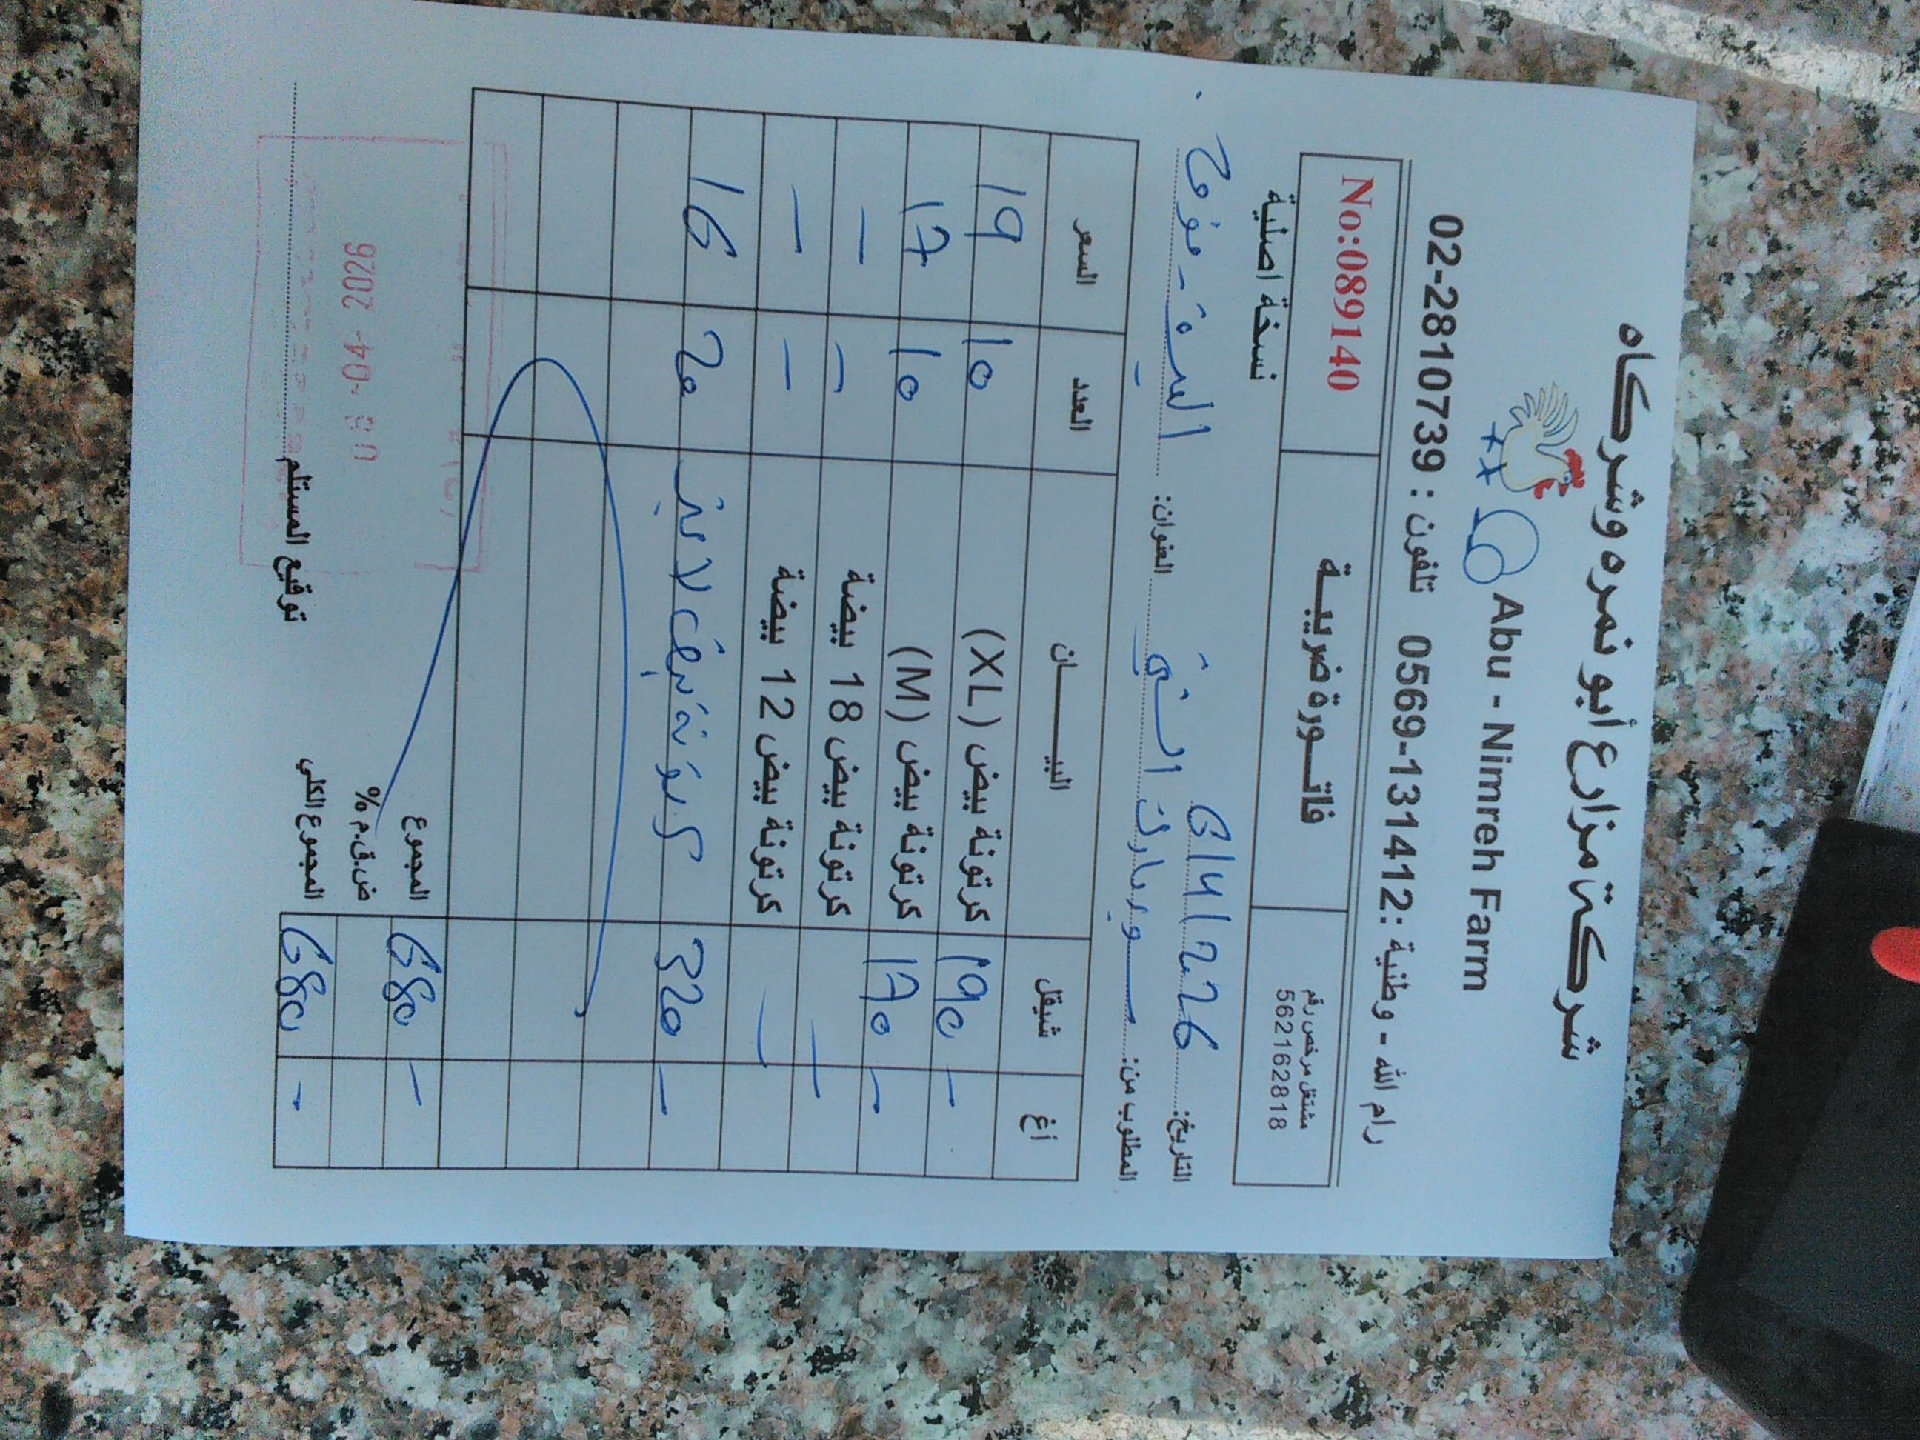 شركة مزارع أبو نمره وشركاه
Abu - Nimreh Farm
رام الله - وطنية: 0569-131412 تلفون: 02-2810739
مشتغل مرخص رقم
562162818
فاتـــورة ضريبيـــة
No:089140
نسخة اصلية
التاريخ: 6/4/2026
المطلوب من: سوبرمارك العنوان: البيرة -
أغ شيقل البيـــــان العدد السعر
- 190 كرتونة بيض (XL) 10 19
- 170 كرتونة بيض (M) 10 17
- - كرتونة بيض 18 بيضة - -
- - كرتونة بيض 12 بيضة - -
- 320 كرتونة بيض 20 16
- 680 المجموع
ض.ق.م %
- 680 المجموع الكلي
توقيع المستلم
-04- 2026